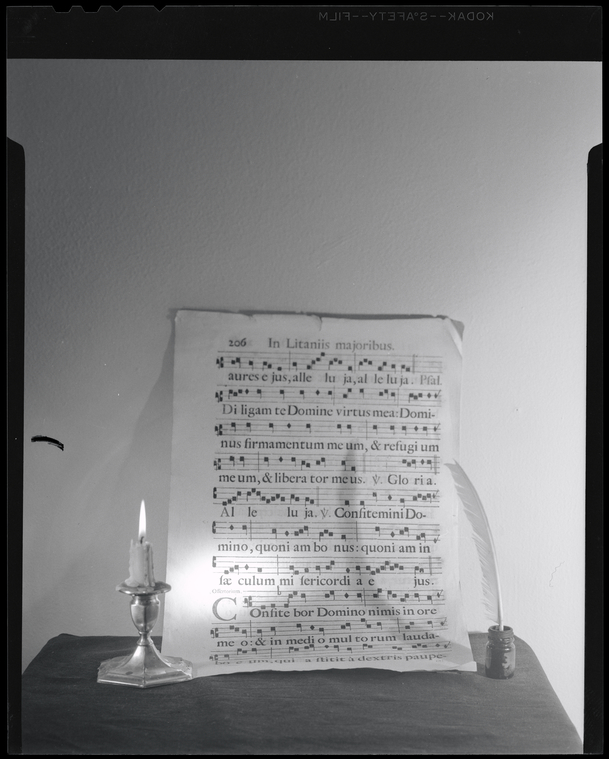 KODAK--S'AFETY--FILM
206 In Litaniis majoribus.
aures e jus, alle lu ja, al le lu ja. Psal.
Di ligam te Domine virtus mea: Domi-
nus firmamentum me um, & refugi um
me um, & libera tor me us. ℣. Glo ri a.
Al le lu ja. ℣. Confitemini Do-
mino, quoni am bo nus: quoni am in
sæ culum mi sericordi a e jus.
COnfite bor Domino nimis in ore
me o: & in medi o mul to rum lauda-
bo e um, qui a stitit à dextris paupe-